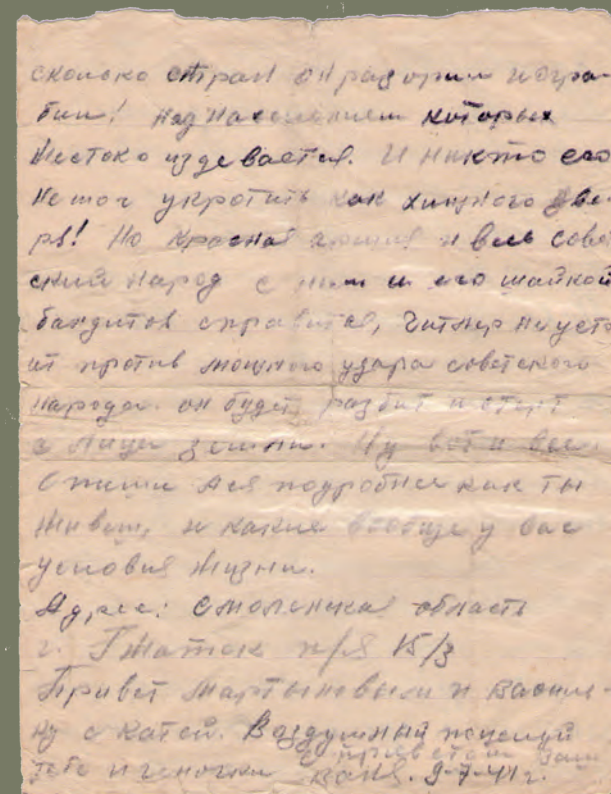 сколько стран он разорил и огра-
бил! Над населением которых
жестоко издевается. И никто его
не мог укротить как хищного зве-
ря! Но красная армия и весь совет
ский народ с ним и его шайкой
бандитов справится, Гитлер неусто
ит против мощного удара советского
народа. он будет разбит и стерт
с лица земли. Ну вот и все.
Опиши Ася подробнее как ты
живеш, и какие вообще у вас
условия жизни.
Адрес: Смоленская область
г. Гжатск п/я 15/3
Привет Мартыновым и Васили-
ну с Катей. Воздушный поцелуй
тебе и геночки с приветом Ваш
Ваня. 9-7-41 г.